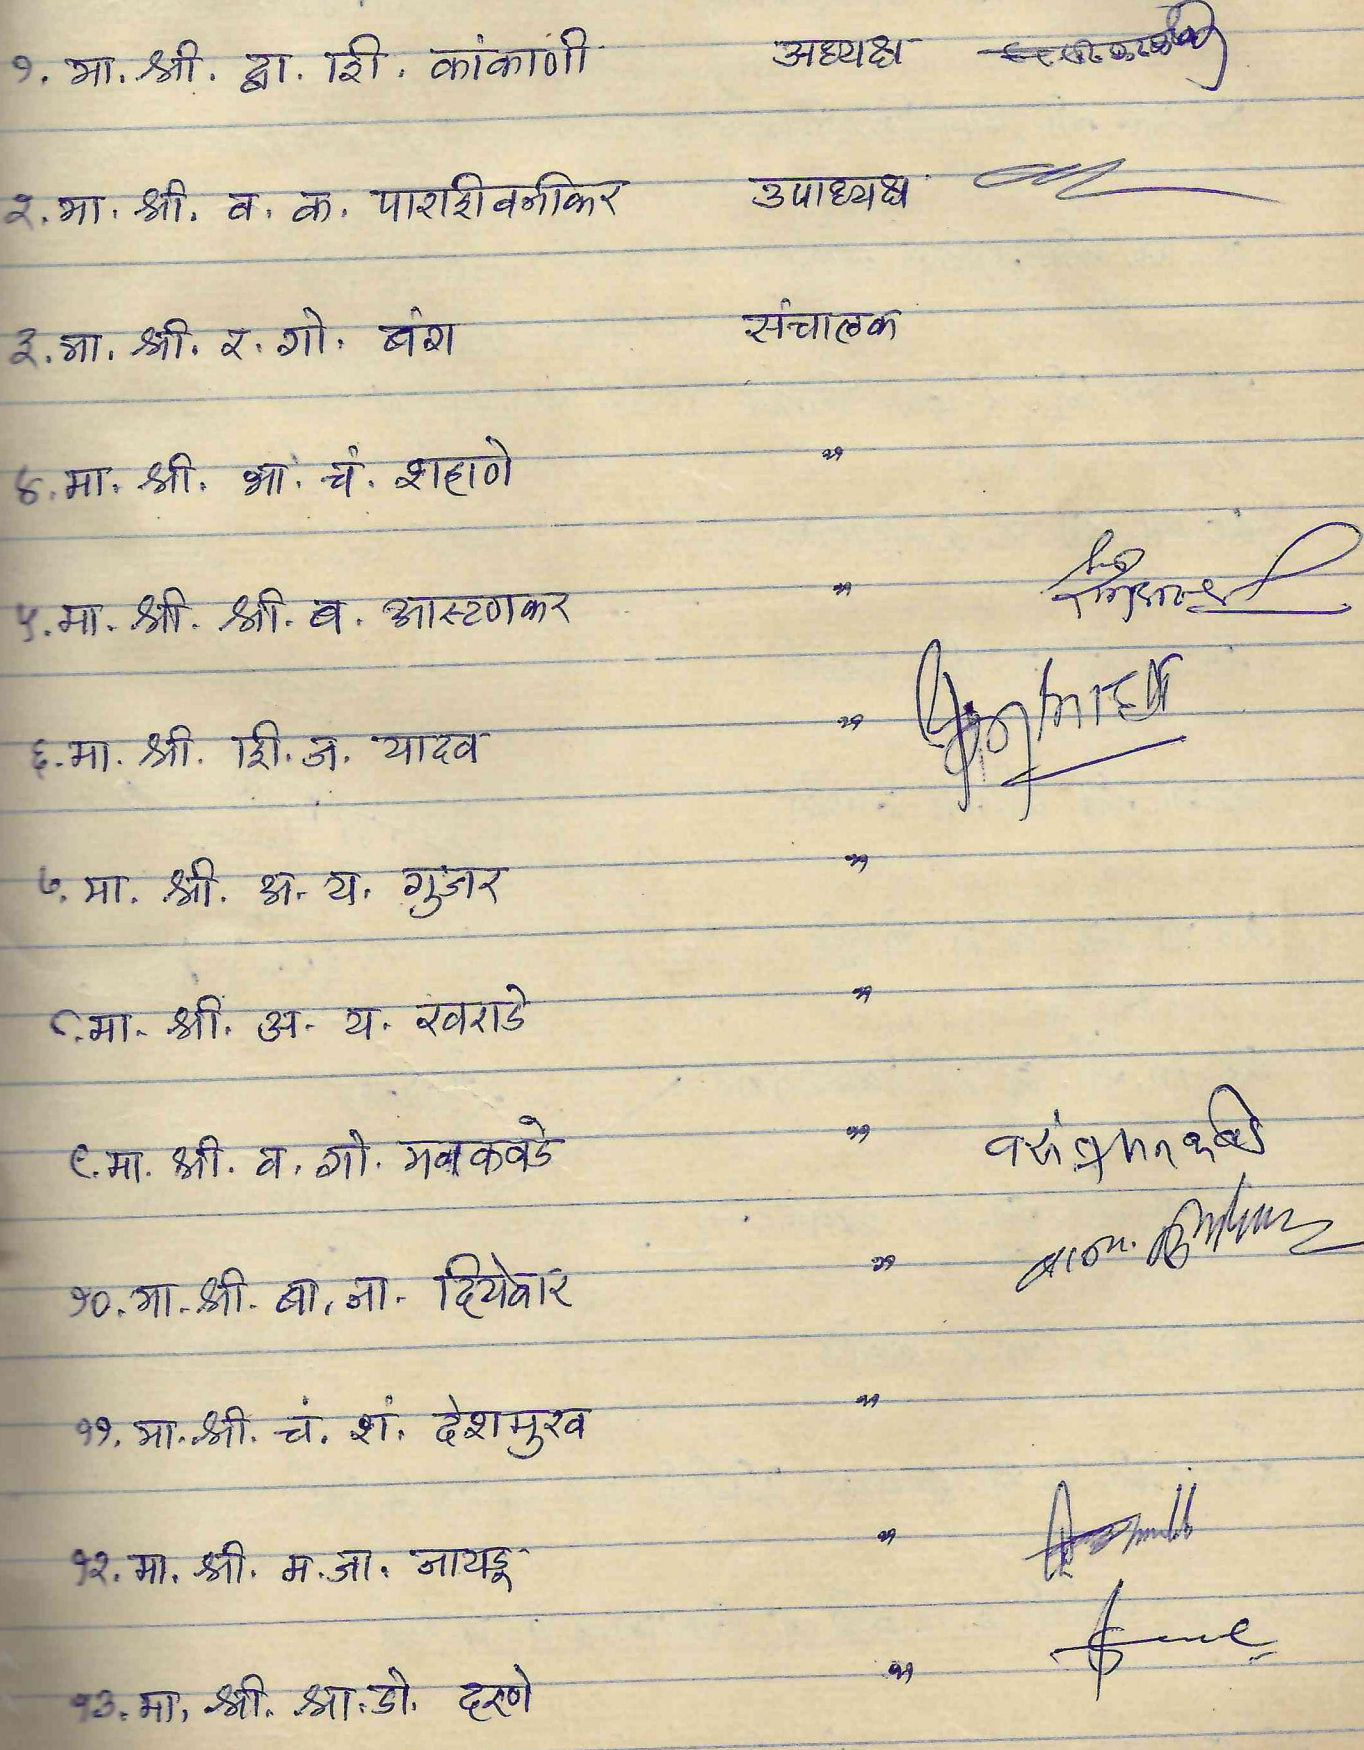 १. मा. श्री. द्वा. शि. कांकाणी अध्यक्ष
२. मा. श्री. व. क. पारशिवनीकर उपाध्यक्ष
३. मा. श्री. र. गो. बंग संचालक
४. मा. श्री. भा. चं. शहाणे "
५. मा. श्री. श्री. ब. आस्टणकर "
६. मा. श्री. शि. ज. यादव "
७. मा. श्री. अ. य. गुजर "
८. मा. श्री. अ. य. खराडे "
९. मा. श्री. व. गो. "
१०. मा. श्री. बा. ना. दियेवार "
११. मा. श्री. चं. शं. देशमुख "
१२. मा. श्री. म. जा. नायडू "
१३. मा. श्री. श्रा. डो. दरणे "